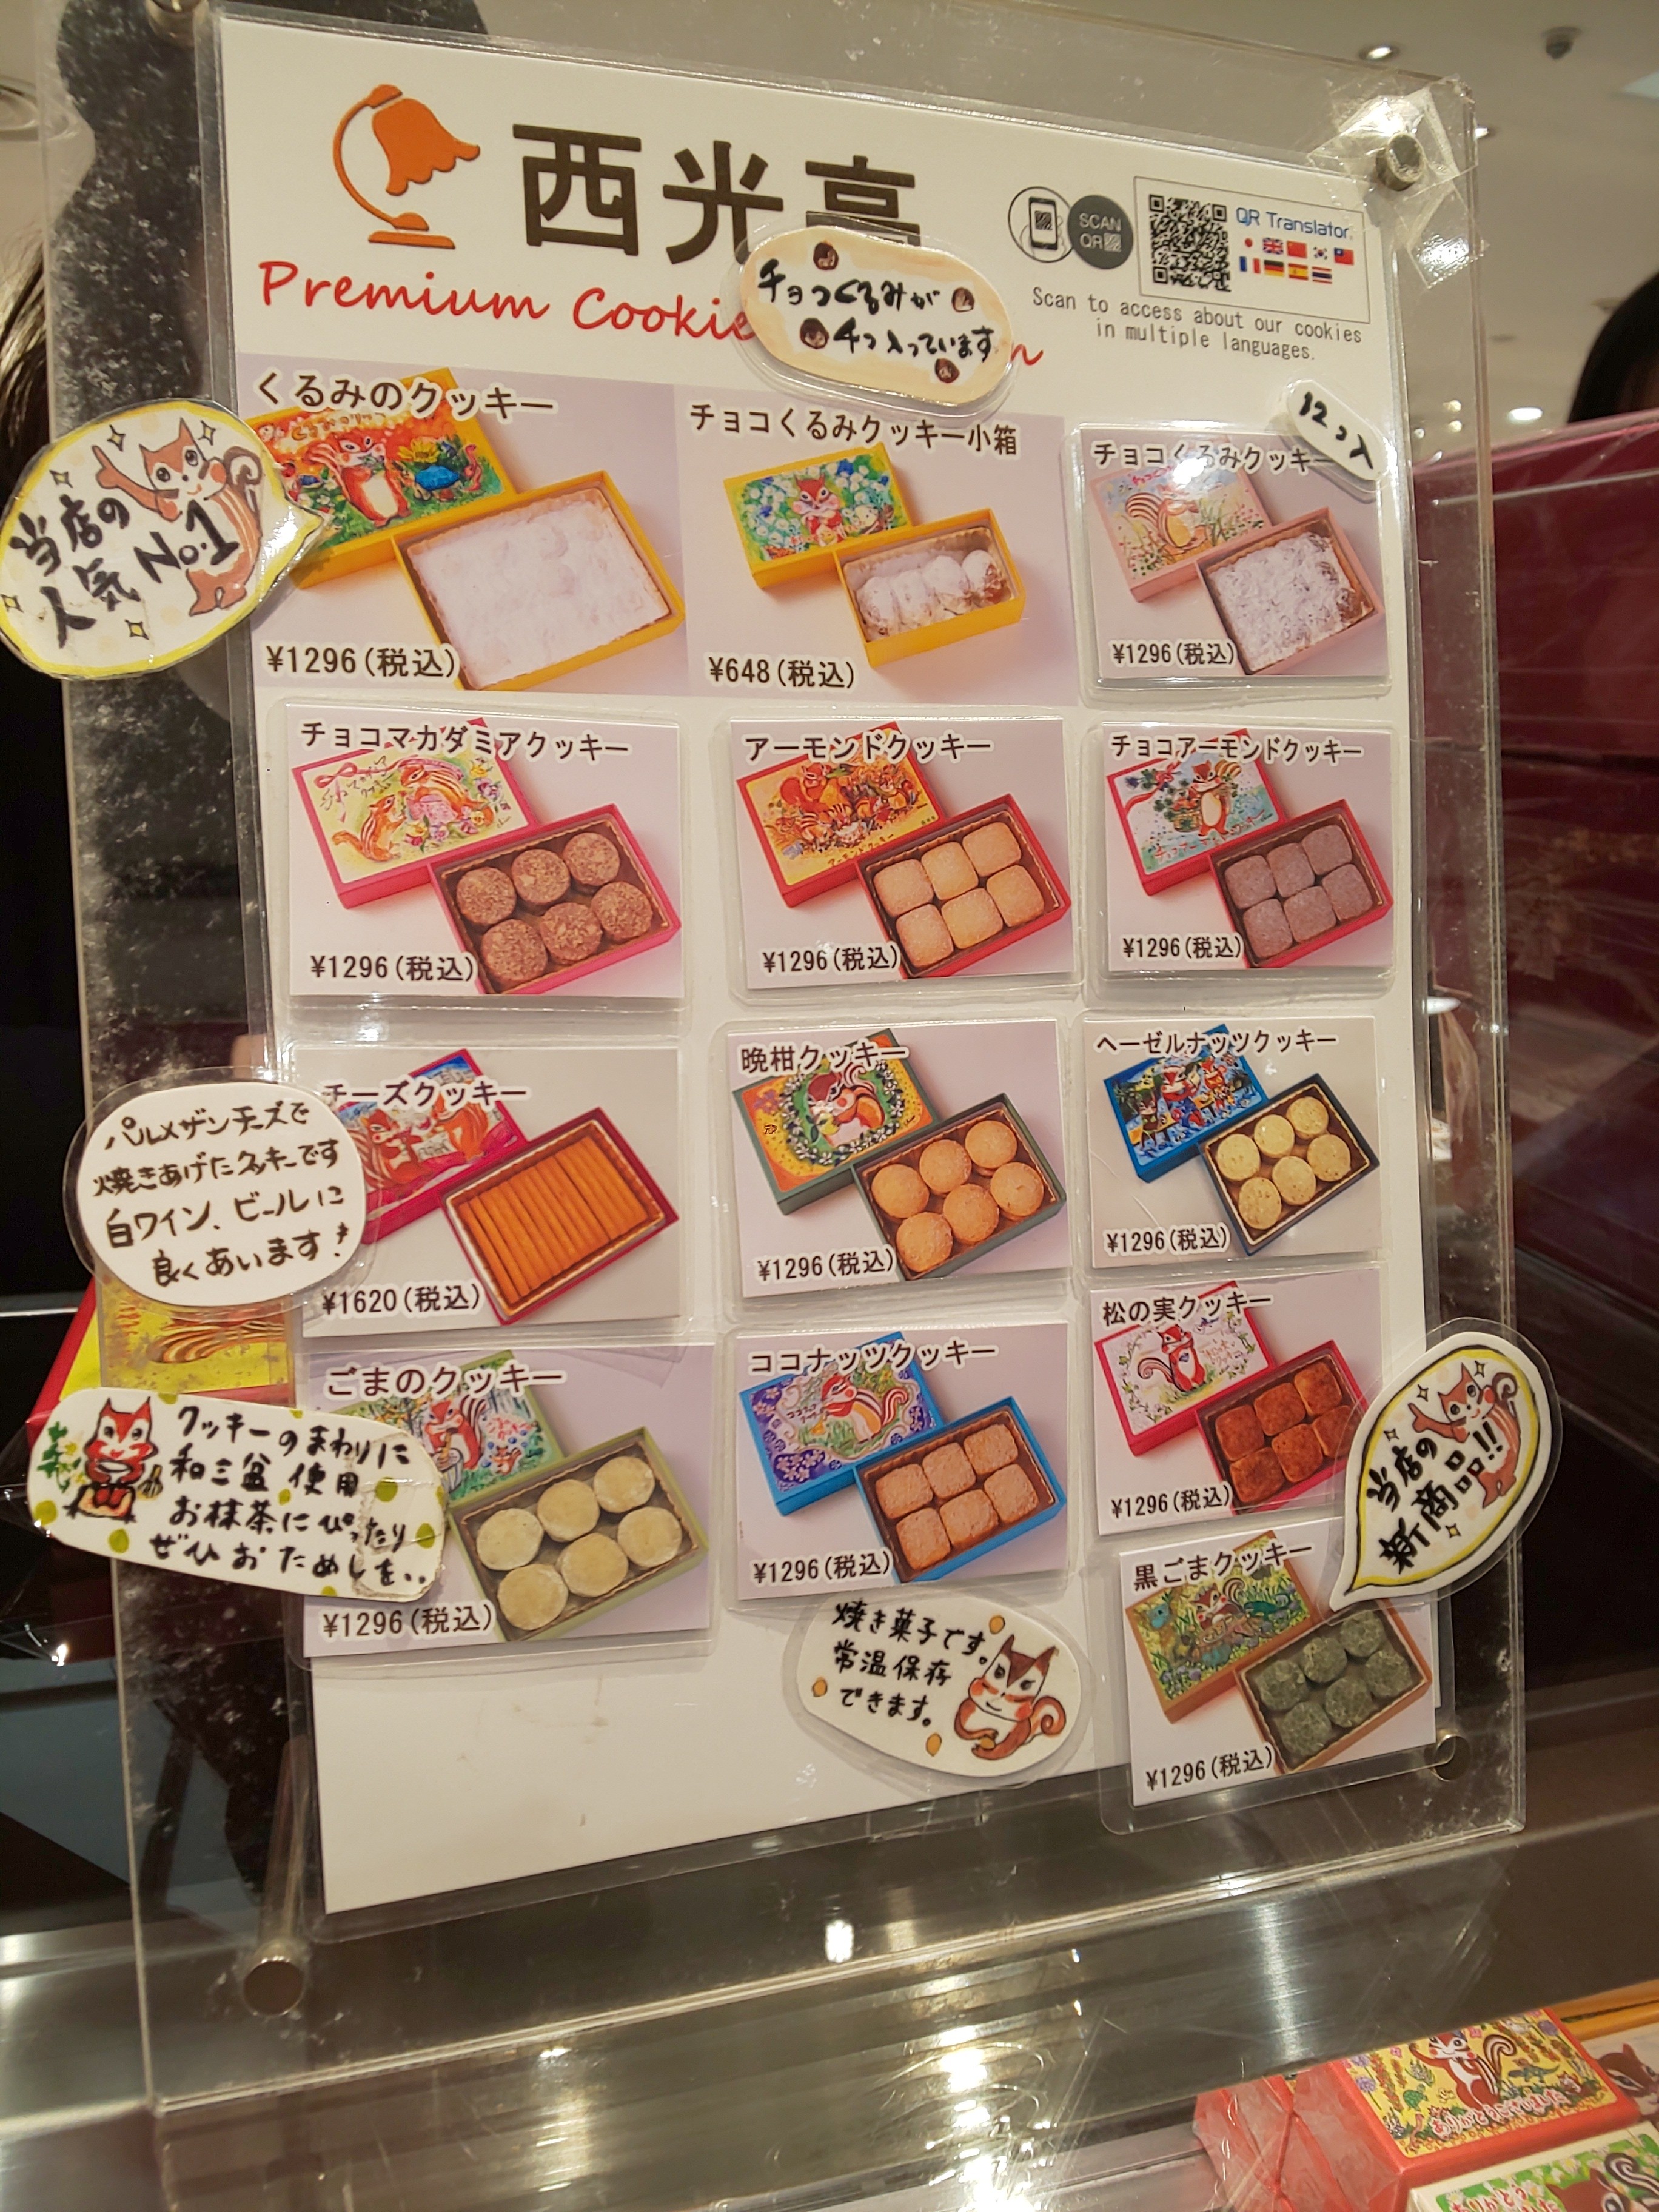 西光亭
Premium Cookie
チョコくるみが
4つ入っています
SCAN
QR
QR Translator
Scan to access about our cookies
in multiple languages.
くるみのクッキー
¥1296(税込)
当店の
人気 No.1
チョコくるみクッキー小箱
¥648(税込)
チョコくるみクッキー
12コ入
¥1296(税込)
チョコマカダミアクッキー
¥1296(税込)
アーモンドクッキー
アーモンドクッキー
¥1296(税込)
チョコアーモンドクッキー
¥1296(税込)
チーズクッキー
パルメザンチーズで
焼きあげたクッキーです
白ワイン、ビールに
良くあいます!
¥1620(税込)
晩柑クッキー
¥1296(税込)
ヘーゼルナッツクッキー
¥1296(税込)
ごまのクッキー
クッキーのまわりに
和三盆 使用
お抹茶にぴったり
ぜひ おためしを..
¥1296(税込)
ココナッツクッキー
¥1296(税込)
松の実クッキー
¥1296(税込)
当店の
新商品!!
黒ごまクッキー
¥1296(税込)
焼き菓子です。
常温保存
できます。
ありがとうございました